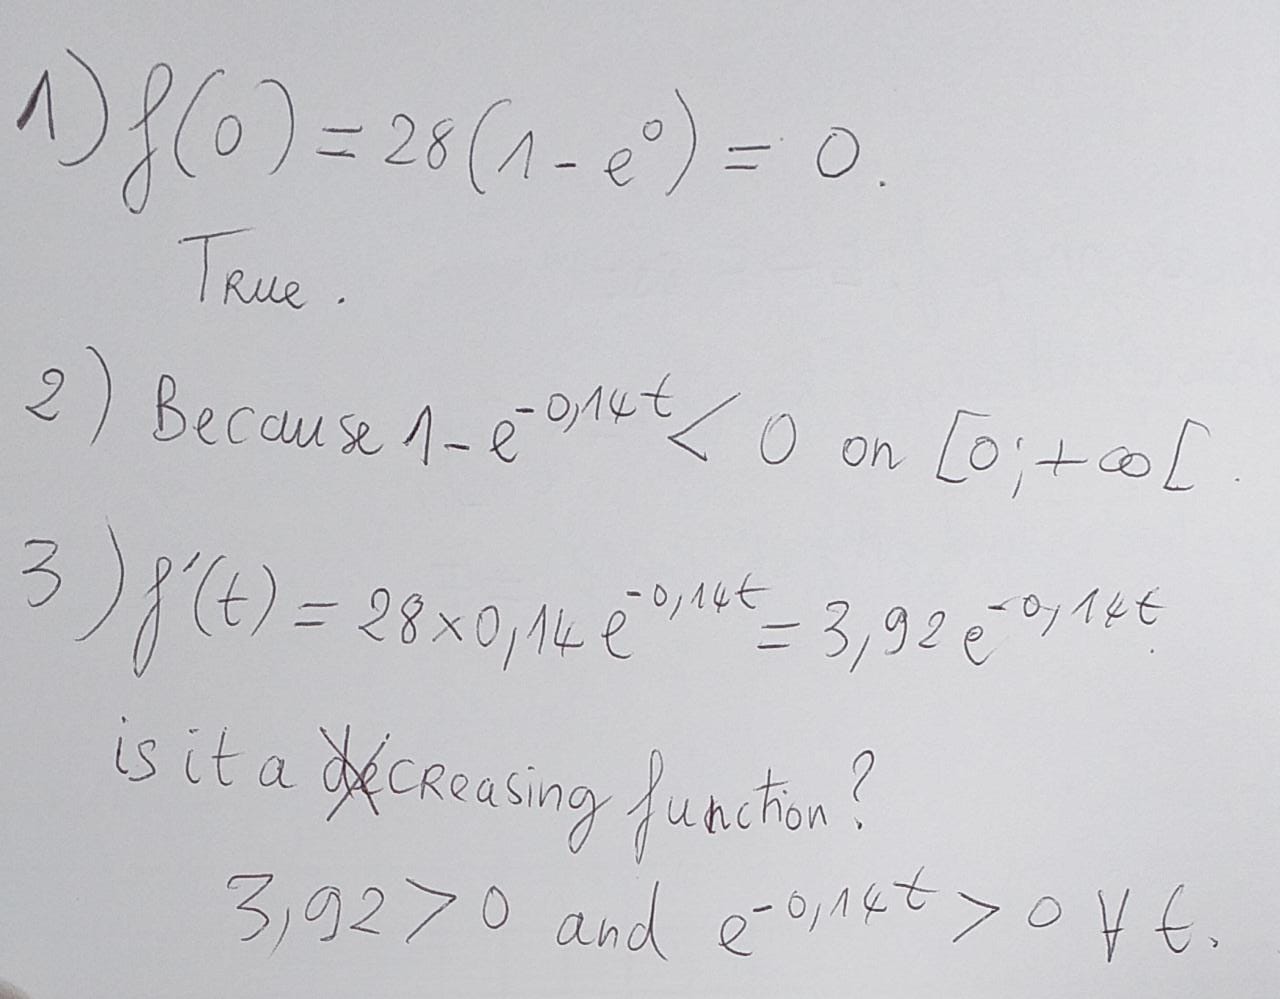 1) f(0) = 28(1 - e⁰) = 0.
True.
2) Because 1 - e^-0,14t < 0 on [0;+∞[.
3) f'(t) = 28×0,14 e^-0,14t = 3,92 e^-0,14t.
is it a creasing function?
3,92 > 0 and e^-0,14t > 0 ∀ t.